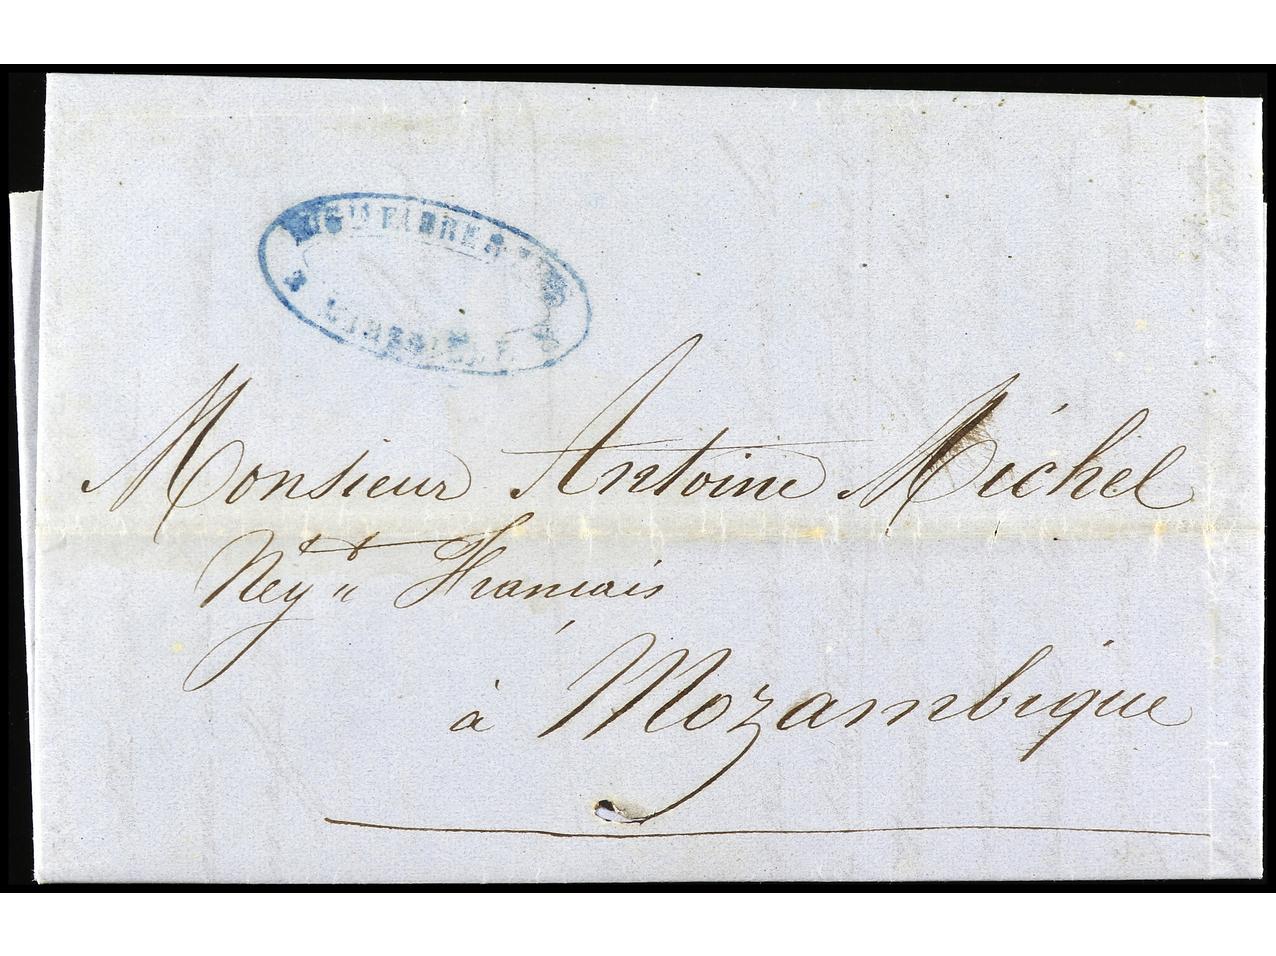 MARSEILLE
Monsieur Antoine Michel
Negt. Francais
à Mozambique